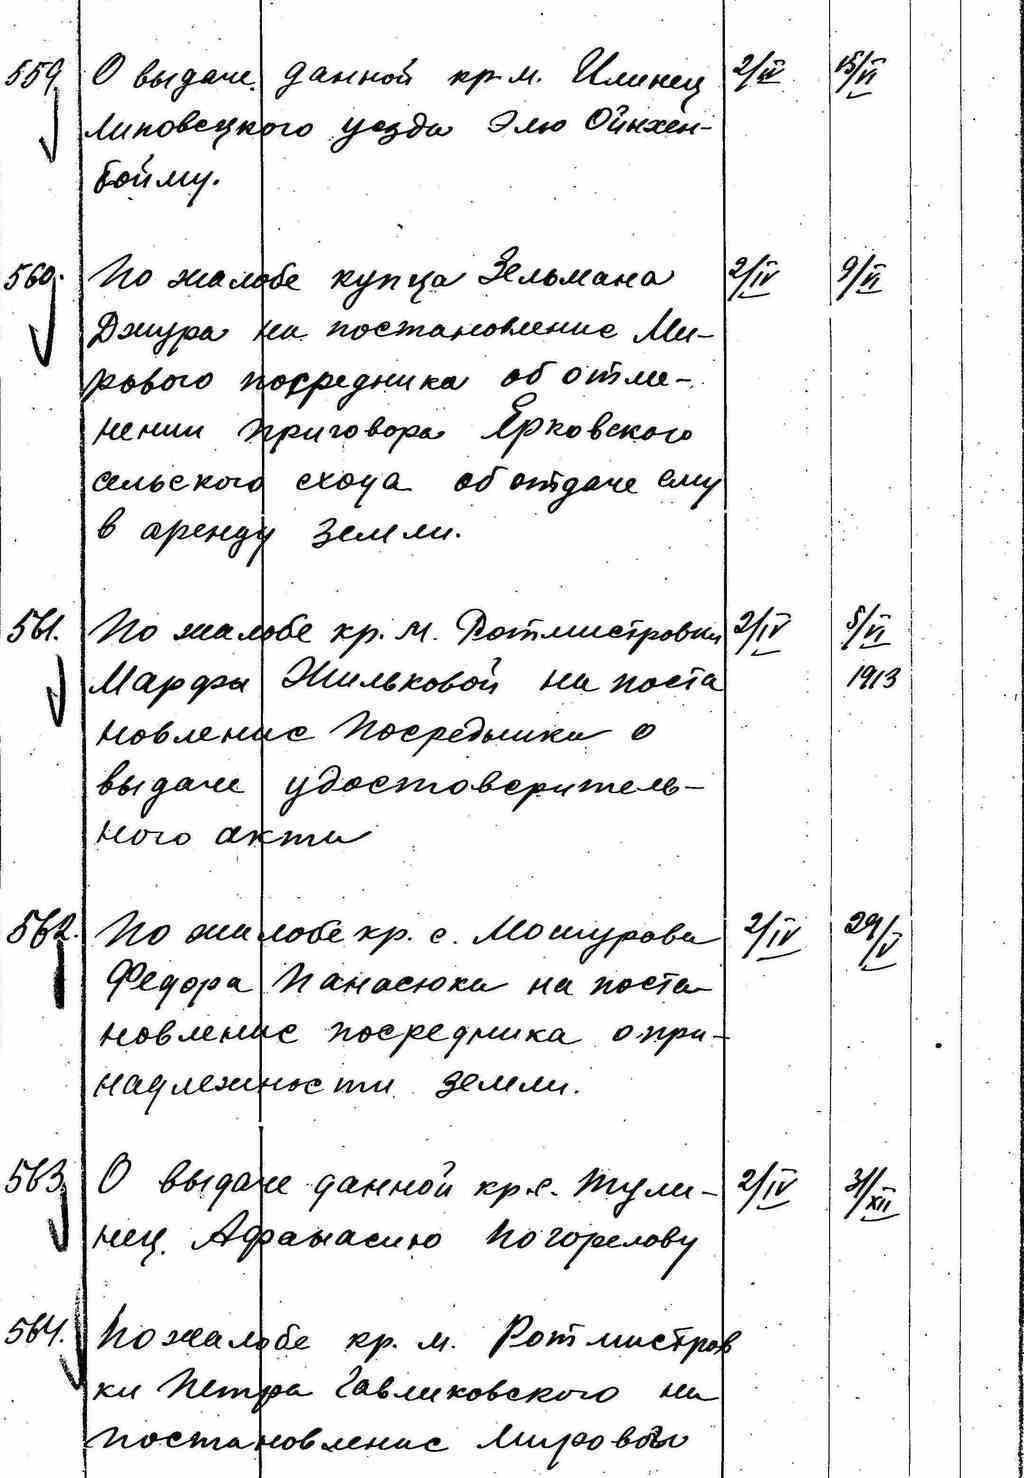 559. О выдаче данной кр. м. Илинец 2/IV 15/VI
Липовецкого уезда Элю Ойнхен-
бойму.
560. По жалобе купца Зельмана 2/IV 9/VI
Джура на постановление Ми-
рового посредника об отме-
нении приговора Ерковского
сельского схода об отдаче ему
в аренду земли.
561. По жалобе кр. м. Ротмистровки 2/IV 5/VI
Марфы Жильковой на поста 1913
новление Посредника о
выдаче удостоверитель-
ного акта
562. По жалобе кр. с. Мошурова 2/IV 29/V
Федора Панасюка на поста
новление посредника о при-
надлежности земли.
563. О выдаче данной кр. с. Тули- 2/IV 31/XII
нец Афанасию Погорелову
564. По жалобе кр. м. Ротмистров
ки Петра Гавликовского на
постановление Мирового